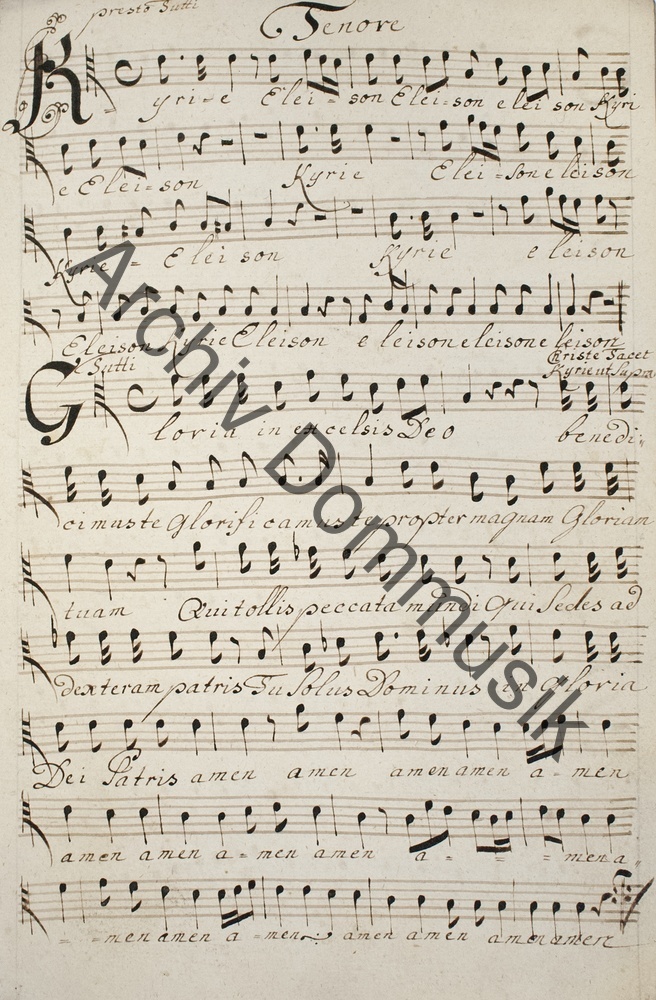 presto Tutti
Tenore
Kyri-e Elei-son Elei-son elei son Kyri
e Elei-son Kyrie Elei-son eleison
Kyrie - Elei son Kyrie eleison
Eleison Kyrie Eleison eleison eleison eleison
Christe Tacet
Kyrie ut Supra
Tutti
Gloria in excelsis Deo benedi-
cimus te Glorificamus te propter magnam Gloriam
tuam Qui tollis peccata mundi Qui Sedes ad
dexteram patris Tu Solus Dominus in Gloria
Dei Patris amen amen amen amen a-men
amen amen a-men amen a - - - men a-
- -men amen a-men amen amen amen amen
Archiv Dommusik